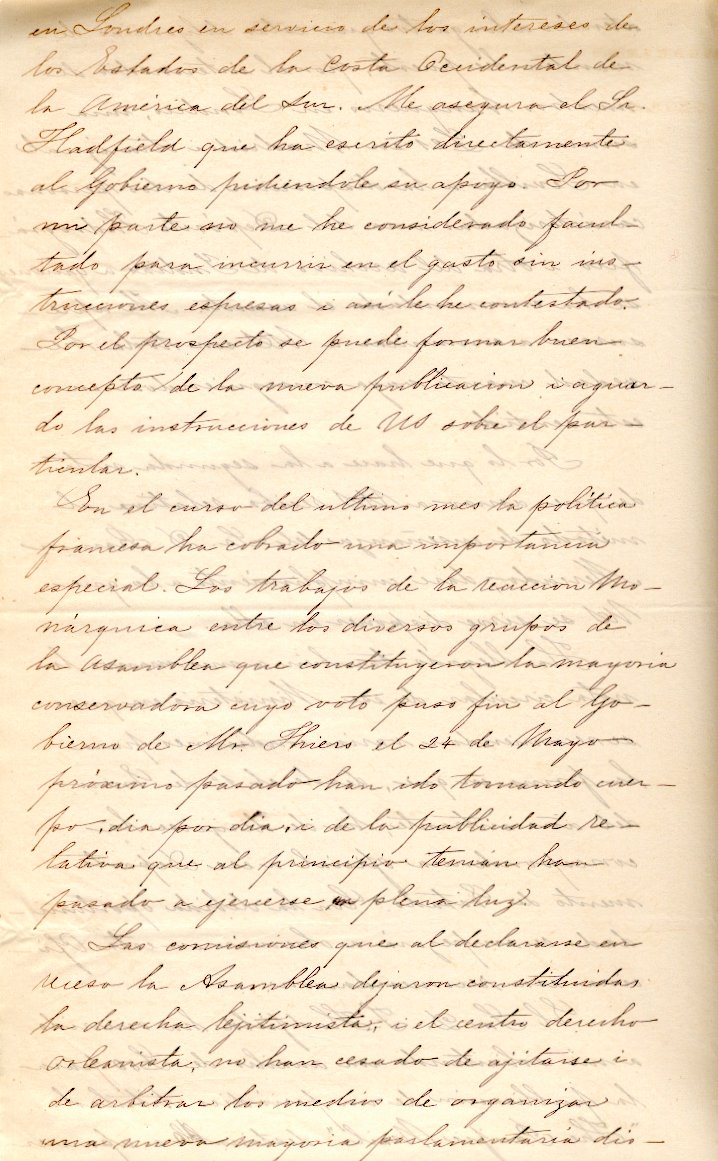 en Londres en servicio de los intereses de
los Estados de la Costa Occidental de
la América del Sur. Me asegura el Sr.
Hadfield que ha escrito directamente
al Gobierno pidiéndole su apoyo. Por
mi parte no me he considerado facul-
tado para incurrir en el gasto sin ins-
trucciones espresas i así le he contestado.
Por el prospecto se puede formar buen
concepto de la nueva publicacion i aguar-
do las instrucciones de US sobre el par-
ticular.
En el curso del ultimo mes la política
francesa ha cobrado una importancia
especial. Los trabajos de la reaccion Mo-
nárquica entre los diversos grupos de
la Asamblea que constituyeron la mayoria
conservadora cuyo voto puso fin al Go-
bierno de Mr. Thiers el 24 de Mayo
próximo pasado han ido tomando cuer-
po, dia por dia, i de la publicidad re-
lativa que al principio tenian han
pasado a ejercerse en plena luz.
Las comisiones que al declararse en
receso la Asamblea dejaron constituidas
la derecha lejitimista, i el centro derecho
orleanista, no han cesado de ajitarse i
de arbitrar los medios de organizar
una nueva mayoría parlamentaria dis-